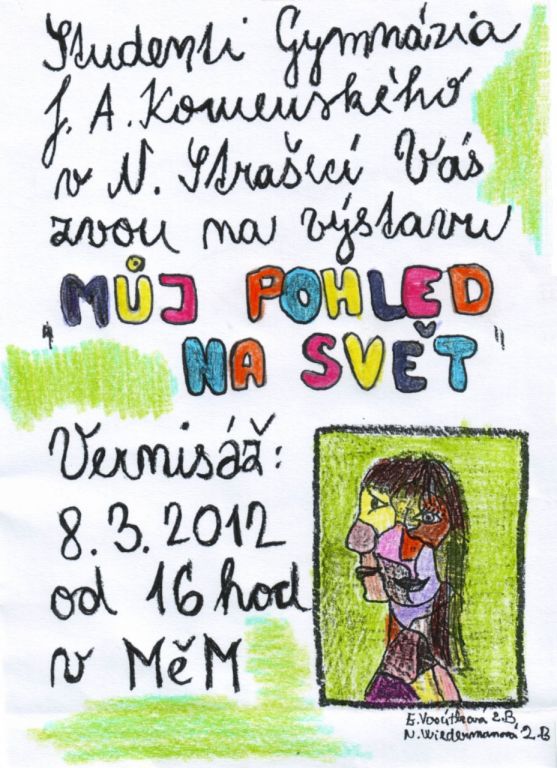 Studenti Gymnázia
J. A. Komenského
v N. Strašecí Vás
zvou na výstavu
"MŮJ POHLED
NA SVĚT"
Vernisáž:
8. 3. 2012
od 16 hod
v MěM
E. 2.B
N. Wiedermanová 2.B